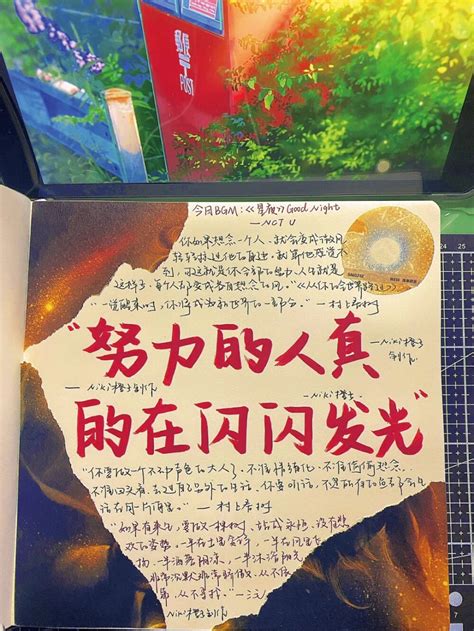 POST
今日BGM:《星夜》Good Night
—NCT U
你如果想念一个人,就会变成微风
轻轻掠过他的身边,就算他感觉不
到,可这就是你全部的努力,人生就是
这样子,每个人都变成各自想念的风。
"一觉醒来时,你将成为新世界的一部分。"—村上春树
"努力的人真
—Niki橙子制作
—Niki橙子
的在闪闪发光"
"你要做一个不动声色的大人了.不准情绪化.不准偷偷想念.
不准回头看.去过自己另外的生活.你要听话,不是所有的鱼都会生
活在同一片海里。"—村上春树
"如果有来生,要做一棵树,站成永恒,没有悲
欢的姿势,一半在土里安详,一半在风里飞
扬,一半洒落阴凉,一半沐浴阳光
非常沉默非常骄傲,从不依
靠,从不寻找。"—三毛
Niki橙子制作
24
25